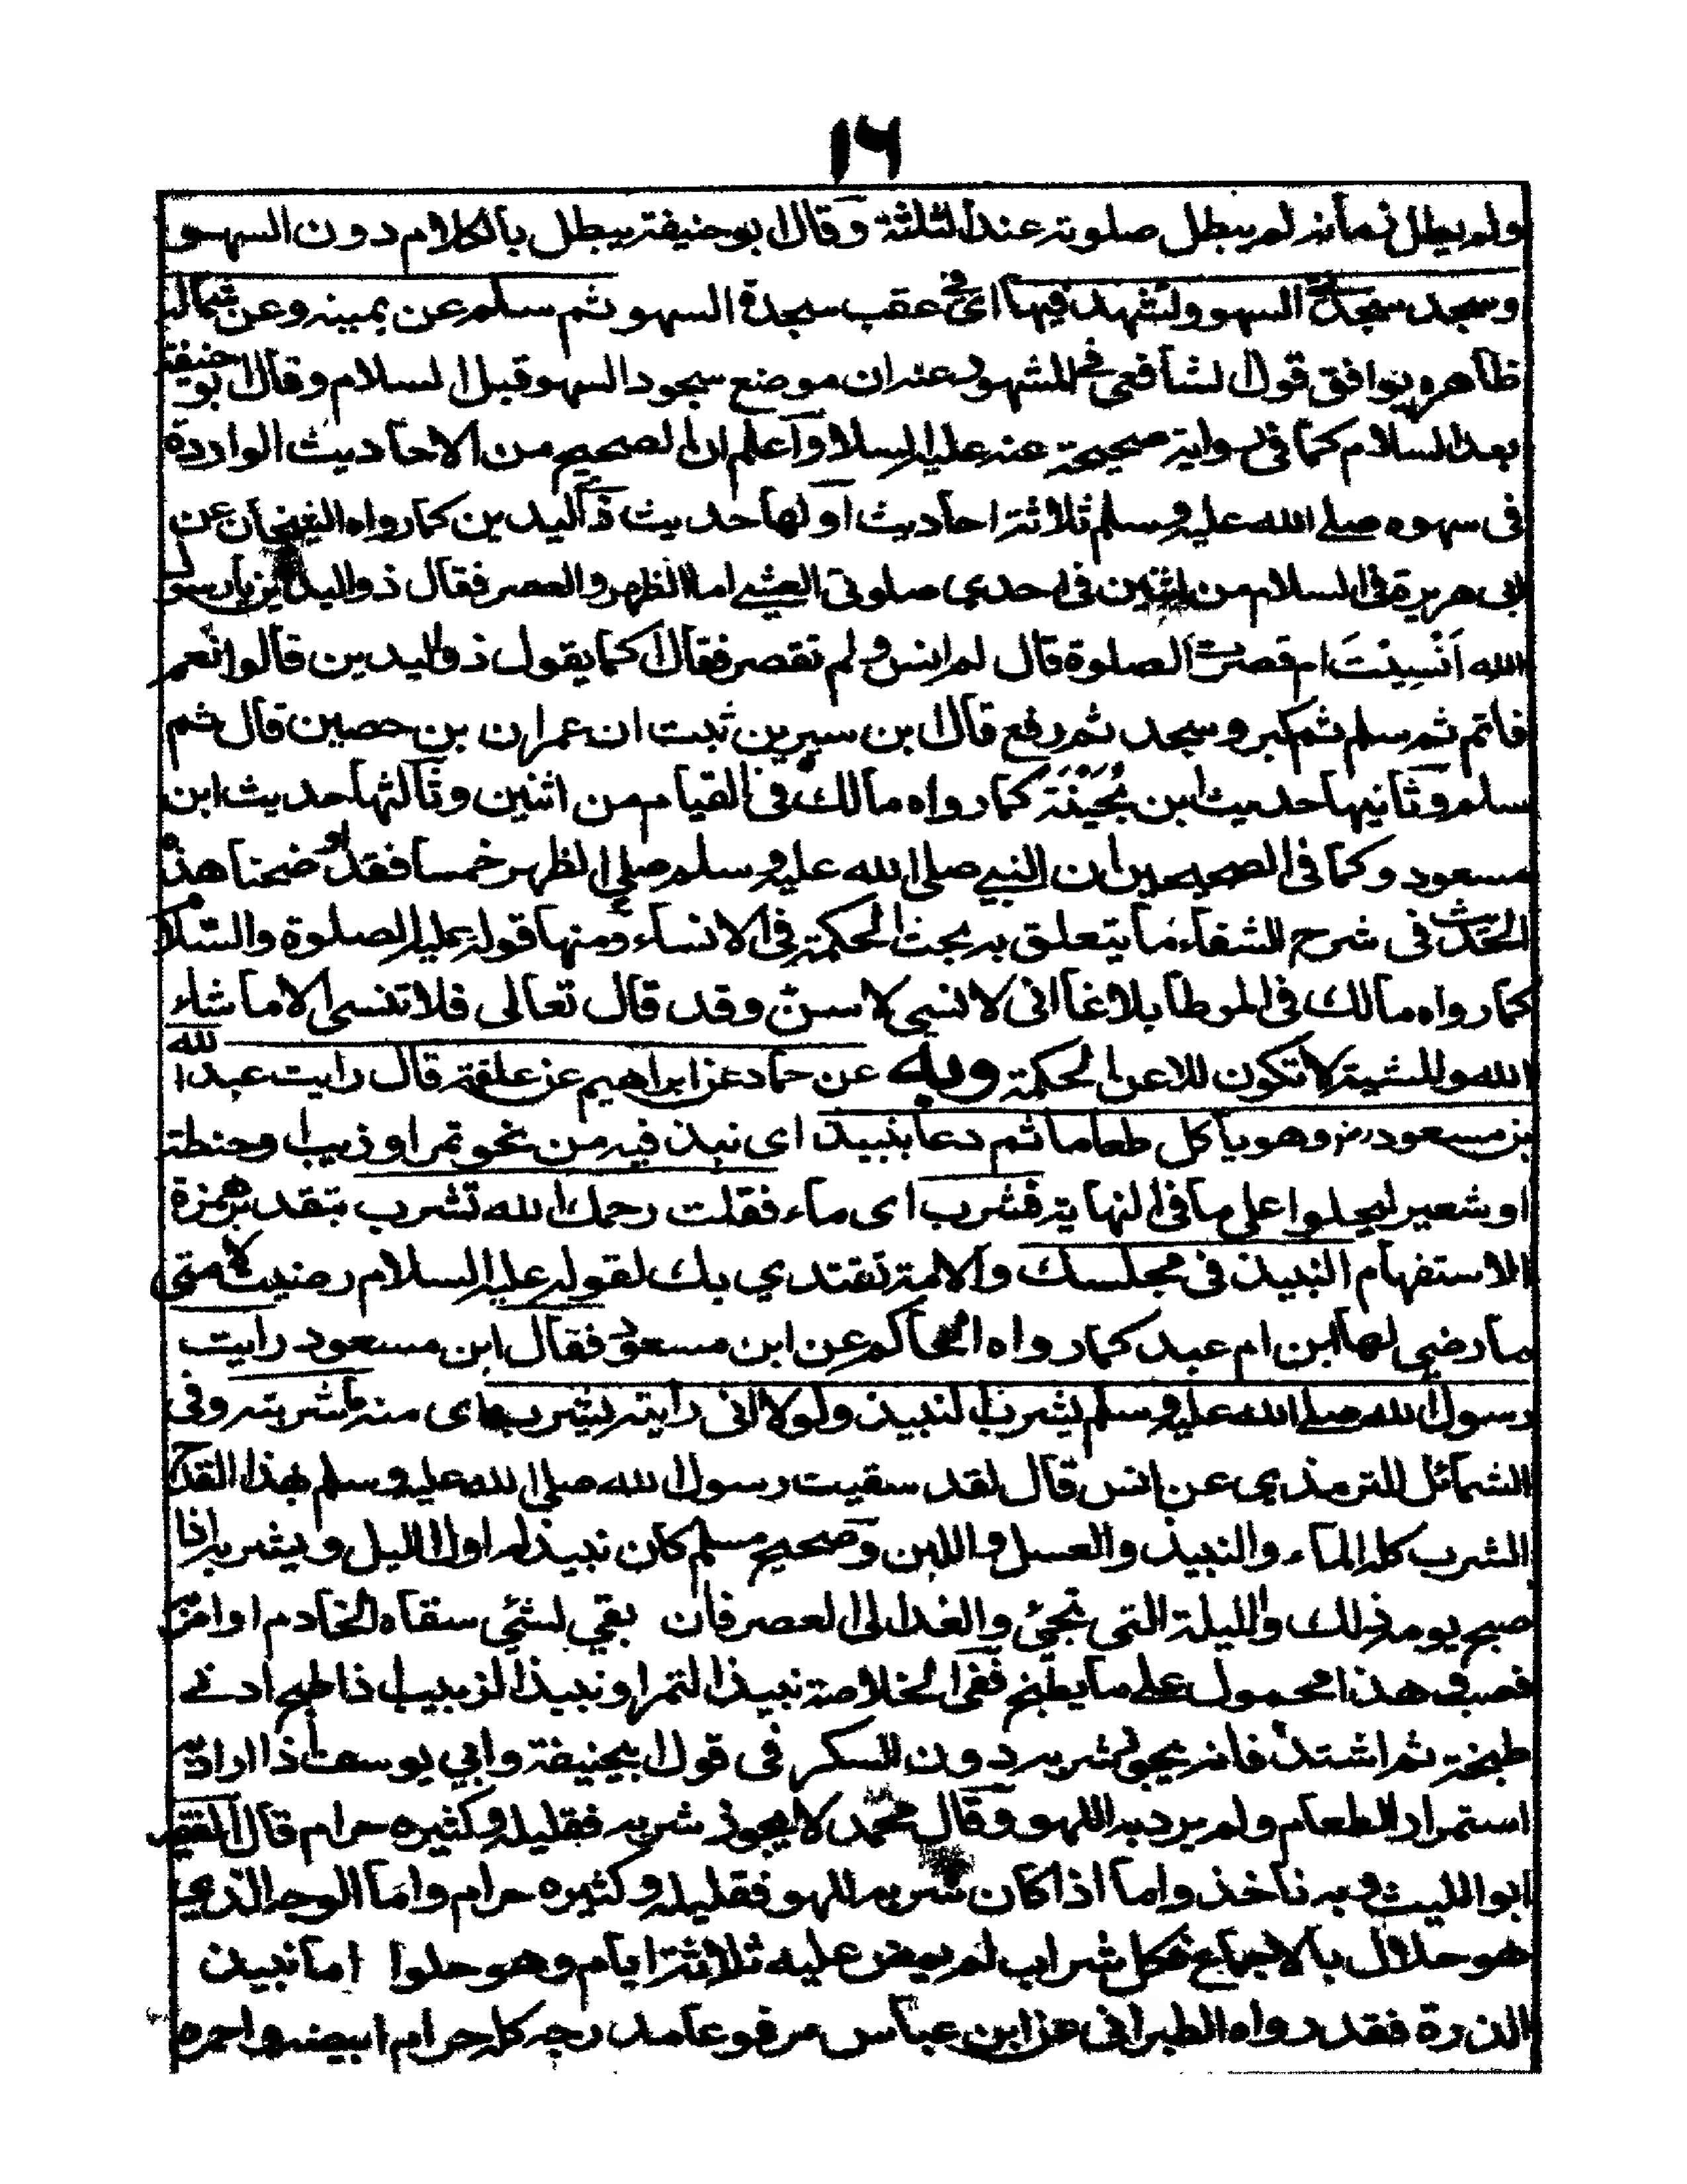 ١٦
ولم يطل زمانه لم يبطل صلوته عند الثلثة وقال ابوحنيفة يبطل بالكلام دون السهو
وسجد سجدتى السهو وتشهد فيها اى فى عقب سجدة السهو ثم سلم عن يمينه وعن شماله
ظاهره يوافق قول الشافعى فى المشهور عنه ان موضع سجود السهو قبل السلام وقال ابو حنيفة
بعد السلام كما فى رواية صحيحة عنه عليه السلا واعلم ان الصحيح من الاحاديث الواردة
فى سهوه صلى الله عليه وسلم ثلاثة احاديث اولها حديث ذى اليدين كما رواه الشيخان عن
ابى هريرة فى السلام من اثنين فى احدي صلوتى العشى اما الظهر والعصر فقال ذو اليدين يارسول
الله اَنَسِيْتَ ام قصرت الصلوة قال لم انس ولم تقصر فقال كما يقول ذو اليدين قالوا نعم
فاتم ثم سلم ثم كبر وسجد ثم رفع قال ابن سيرين ثبت ان عمران بن حصين قال ثم
سلم وثانيها حديث ابن بُحَيْنَة كما رواه مالك فى القيام من اثنين وثالثها حديث ابن
مسعود وكما فى الصحيحين ان النبى صلى الله عليه وسلم صلى الظهر خمسا فقد اوضحنا هذه
الحديث فى شرح الشفاء ما يتعلق به بحث الحكمة فى الانساء ومنها قوله عليه الصلوة والسلام
كما رواه مالك فى الموطا بلاغا انى لا نسى لاسنّ وقد قال تعالى فلا تنسى الا ما شاء
الله والمشية لا تكون الا عن الحكمة وبه عن حماد عن ابراهيم عن علقمة قال رايت عبد الله
بن مسعود رض وهو يأكل طعاما ثم دعا بنبيذ اى نبذ فيه من نحو تمر او زبيب او حنطة
او شعير ليحلوا على ما فى النهاية فشرب اى ماء فقلت رحمك الله تشرب بتقدير همزة
الاستفهام النبيذ فى مجلسك والامة تقتدي بك لقوله عليه السلام رضيت لامتى
ما رضى لها ابن ام عبد كما رواه الحاكم عن ابن مسعود فقال ابن مسعود رايت
رسول الله صلى الله عليه وسلم يشرب النبيذ ولولا انى رايته يشرب اى منه ما شربته وفى
الشمائل للترمذي عن انس قال لقد سقيت رسول الله صلى الله عليه وسلم بهذا القدح
الشرب كله الماء والنبيذ والعسل واللبن وصحيح مسلم كان نبيذ له اول الليل ويشربه اذا
صبح يومه ذلك والليلة التى تجئ والغد الى العصر فان بقى لشئ سقاه الخادم او امر
فصب وهذا محمول على ما يطبخ ففى الخلاصة نبيذ التمر او نبيذ الزبيب اذا طبخ ادنى
طبخة ثم اشتد فانه يجوز شربه دون السكر فى قول ابيحنيفة وابي يوسف اذا اراد به
استمرار الطعام ولم يرد به اللهو وقال محمد لا يجوز شربه فقليله وكثيره حرام قال الفقيه
ابو الليث وبه ناخذ واما اذا كان شربه للهو فقليله وكثيره حرام واما الوجه الذي
هو حلال بالاجماع فكل شراب لم يمض عليه ثلاثة ايام وهو حلوا اما نبيذ
الذرة فقد رواه الطبرانى عن ابن عباس مرفوعا مد رجه كله حرام ابيضه واحمره